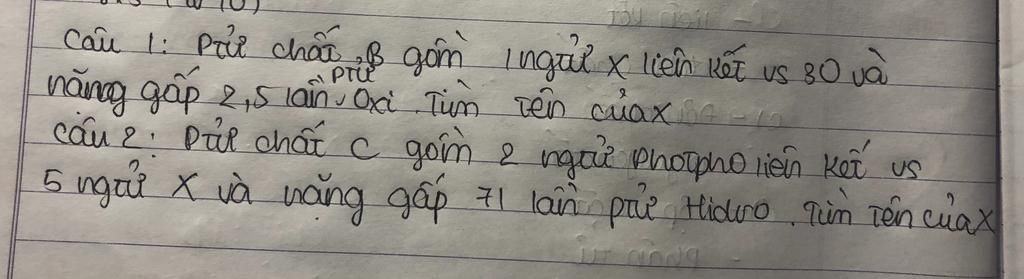 câu 1: Ptử chất B gồm 1 ngtử X liên kết vs 3O và
nặng gấp 2,5 lần ptử Oxi. Tìm tên của X
câu 2: Ptử chất C gồm 2 ngtử photpho liên kết vs
5 ngtử X và nặng gấp 71 lần ptử Hidro. Tìm tên của X